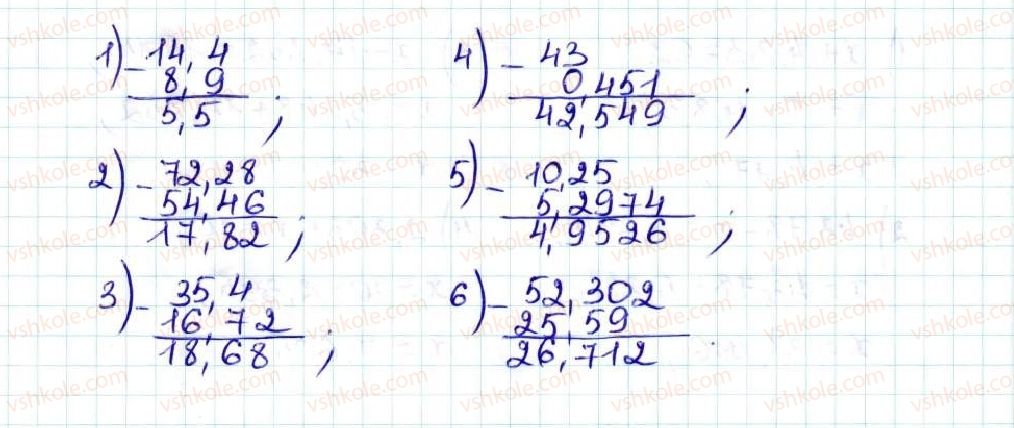 1) - 14,4
8,9
5,5 ;
2) - 72,28
54,46
17,82 ;
3) - 35,4
16,72
18,68 ;
4) - 43
0,451
42,549 ;
5) - 10,25
5,2974
4,9526 ;
6) - 52,302
25,59
26,712
vshkole.com